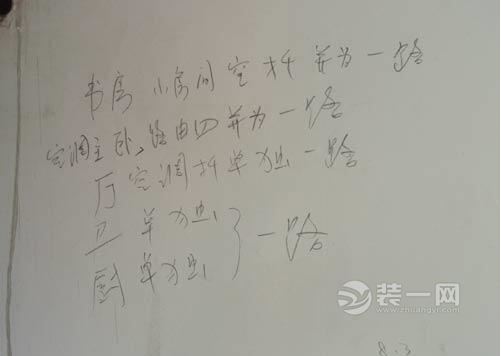 书房 小房间 空 才 并为一路
空调主卧、路由四 并为一路
厅 空调才单独一路
卫 单独
厨 单独 } 一路
装一网
www.zhuangyi.com
8.3